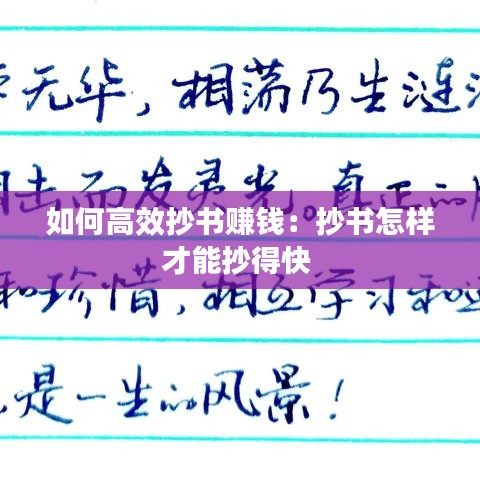 无华，相荡乃生涟
相击而发灵光。真正的
如何高效抄书赚钱：抄书怎样
才能抄得快
和珍惜，相互学习和
是一生的风景！